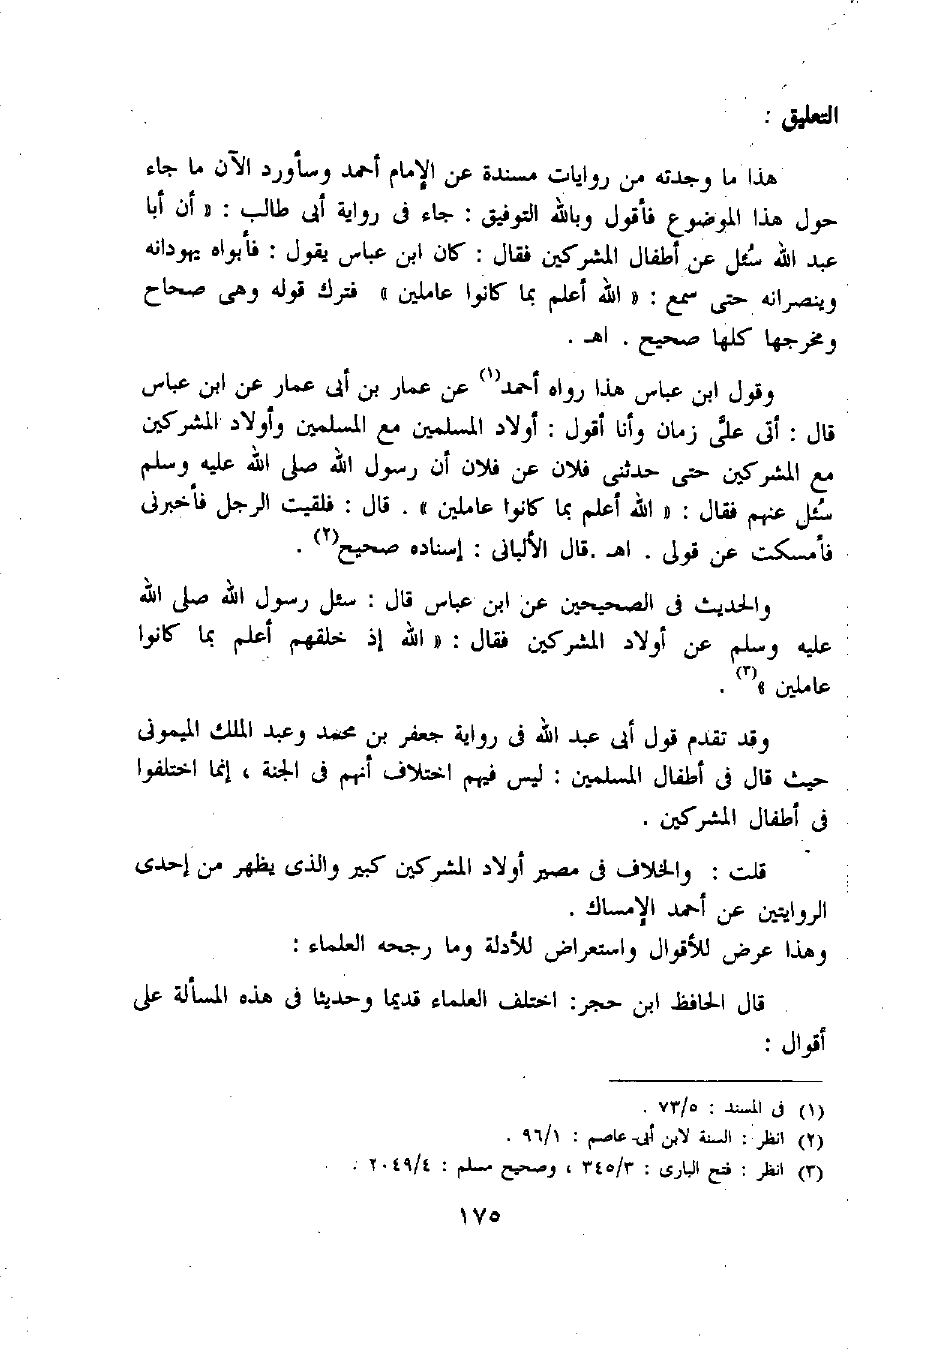 التعليق :
هذا ما وجدته من روايات مسندة عن الإمام أحمد وسأورد الآن ما جاء
حول هذا الموضوع فأقول وبالله التوفيق : جاء فى رواية أبى طالب : « أن أبا
عبد الله سُئل عن أطفال المشركين فقال : كان ابن عباس يقول : فأبواه يهودانه
وينصرانه حتى سمع : « الله أعلم بما كانوا عاملين » فترك قوله وهى صحاح
ومخرجها كلها صحيح . اهـ .
وقول ابن عباس هذا رواه أحمد(١) عن عمار بن أبى عمار عن ابن عباس
قال : أتى علىَّ زمان وأنا أقول : أولاد المسلمين مع المسلمين وأولاد المشركين
مع المشركين حتى حدثنى فلان عن فلان أن رسول الله صلى الله عليه وسلم
سُئل عنهم فقال : « الله أعلم بما كانوا عاملين » . قال : فلقيت الرجل فأخبرنى
فأمسكت عن قولى . اهـ .قال الألبانى : إسناده صحيح(٢) .
والحديث فى الصحيحين عن ابن عباس قال : سئل رسول الله صلى الله
عليه وسلم عن أولاد المشركين فقال : « الله إذ خلقهم أعلم بما كانوا
عاملين »(٣) .
وقد تقدم قول أبى عبد الله فى رواية جعفر بن محمد وعبد الملك الميمونى
حيث قال فى أطفال المسلمين : ليس فيهم اختلاف أنهم فى الجنة ، إنما اختلفوا
فى أطفال المشركين .
قلت : والخلاف فى مصير أولاد المشركين كبير والذى يظهر من إحدى
الروايتين عن أحمد الإمساك .
وهذا عرض للأقوال واستعراض للأدلة وما رجحه العلماء :
قال الحافظ ابن حجر: اختلف العلماء قديما وحديثا فى هذه المسألة على
أقوال :
(١) فى المسند : ٧٣/٥ .
(٢) انظر : السنة لابن أبى عاصم : ٩٦/١ .
(٣) انظر : فتح البارى : ٣٤٥/٣ ، وصحيح مسلم : ٢٠٤٩/٤ .
١٧٥